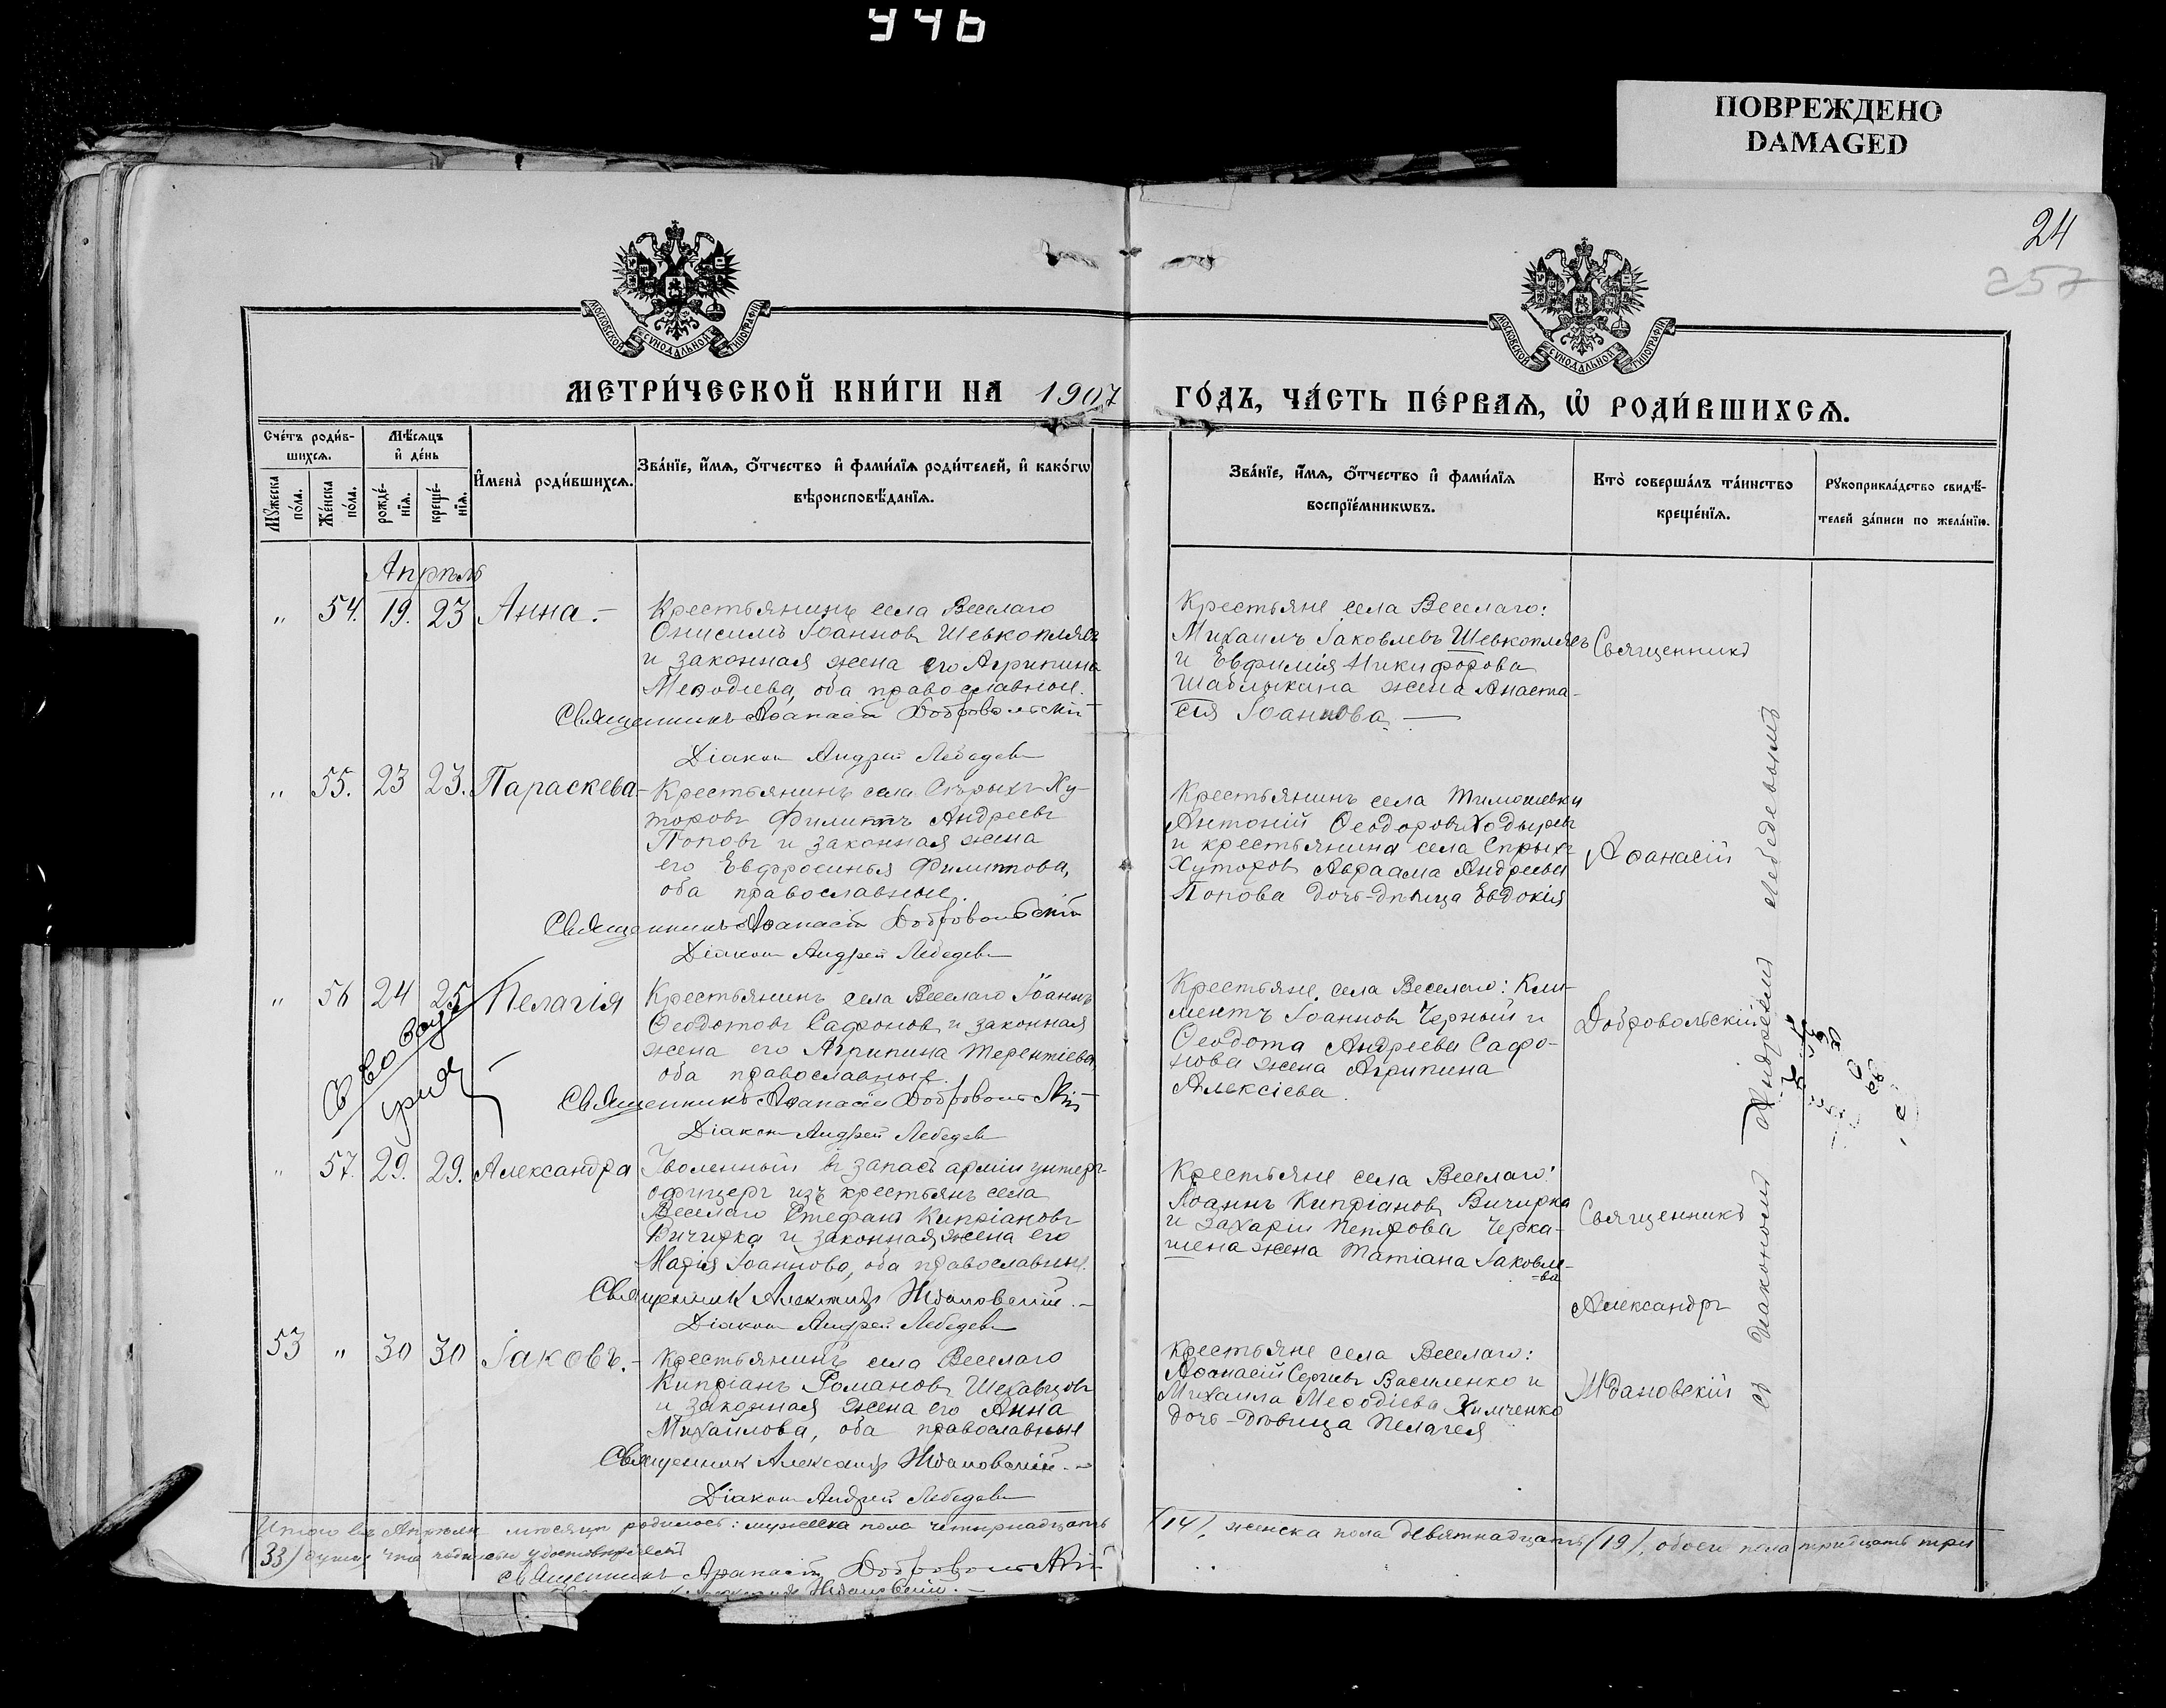 946
ПОВРЕЖДЕНО
DAMAGED
24
257
МОСКОВСКОЙ СѴНОДАЛЬНОЙ ТИПОГРАФІИ
МОСКОВСКОЙ СѴНОДАЛЬНОЙ ТИПОГРАФІИ
МЕТРИ́ЧЕСКОЙ КНИ́ГИ НА 1907 ГО́ДЪ, ЧА́СТЬ ПЕ́РВАѦ, Ѡ҆ РОДИ́ВШИХСѦ.
Сче́тъ роди́в-
шихсѧ.
Мꙋ́жеска по́ла.
Же́нска по́ла.
Мѣ́сѧцъ
и҆ де́нь
рожде́-
нїѧ.
креще́-
нїѧ.
И҆мена̀ роди́вшихсѧ.
Зва́нїе, и҆́мѧ, ѻ҆́тчество и҆ фами́лїѧ роди́телей, и҆ како́гѡ
вѣроисповѣ́данїѧ.
Зва́нїе, и҆́мѧ, ѻ҆́тчество и҆ фами́лїѧ
воспрїе́мникѡвъ.
Кто̀ соверша́лъ та́инство
креще́нїѧ.
Рꙋкоприкла́дство свидѣ́-
телей за́писи по жела́нїю.
Апрѣль
" 54. 19. 23 Анна. –
Крестьянинъ села Веселаго
Онисимъ Іоанновъ Шевкоплясъ
и законная жена его Агрипина
Меѳодіева, оба православные.
Священникъ Аѳанасій Добровольскій
Діаконъ Андрей Лебедевъ
Крестьяне села Веселаго:
Михаилъ Іаковлевъ Шевкоплясъ
и Евфимія Никифорова
Шаблыкина жена Анаста-
сія Іоаннова. —
Священникъ
" 55. 23 23. Параскева –
Крестьянинъ села Сѣрыхъ Ху-
торовъ Филиппъ Андреевъ
Поповъ и законная жена
его Евфросинья Филиппова,
оба православные.
Священникъ Аѳанасій Добровольскій
Діаконъ Андрей Лебедевъ
Крестьянинъ села Тимошевки
Антоній Ѳеодоровъ Ходыревъ
и крестьянина села Сѣрыхъ
Хуторовъ Авраама Андреева
Попова дочь-дѣвица Евдокія
Аѳанасій
" 56 24 25 Пелагія
Крестьянинъ села Веселаго Іоаннъ
Ѳеодотовъ Сафоновъ и законная
жена его Агрипина Терентіева,
оба православные.
Священникъ Аѳанасій Добровольскій
Діаконъ Андрей Лебедевъ
Крестьяне села Веселаго: Кли-
ментъ Іоанновъ Черный и
Ѳеодота Андреева Сафо-
нова жена Агрипина
Алексіева.
Добровольскій
" 57. 29. 29. Александра
Уволенный въ запасъ арміи унтеръ-
офицеръ изъ крестьянъ села
Веселаго Стефанъ Кипріановъ
Вичирка и законная жена его
Марія Іоаннова, оба православные.
Священникъ Александръ Ждановскій. –
Діаконъ Андрей Лебедевъ
Крестьяне села Веселаго:
Іоаннъ Кипріановъ Вичирка
и Захарія Петрова Черка-
шена жена Татіана Іаковле-
-ва
Священникъ
Александръ
53 " 30 30 Іаковъ. –
Крестьянинъ села Веселаго
Кипріанъ Романовъ Шеховцовъ
и законная жена его Анна
Михайлова, оба православные
Священникъ Александръ Ждановскій. –
Діаконъ Андрей Лебедевъ
Крестьяне села Веселаго:
Аѳанасій Сергіевъ Василенко и
Михаила Меѳодіева Химченко
дочь-дѣвица Пелагея
Ждановскій
съ діакономъ Андреемъ Лебедевымъ
Итого въ Апрѣлѣ мѣсяцѣ родилось: мужеска пола четырнадцать (14), женска пола девятнадцать (19), обоего пола тридцать три
(33) души, что подписью удостовѣряемъ
Священникъ Аѳанасій Добровольскій
Александръ Ждановскій. –